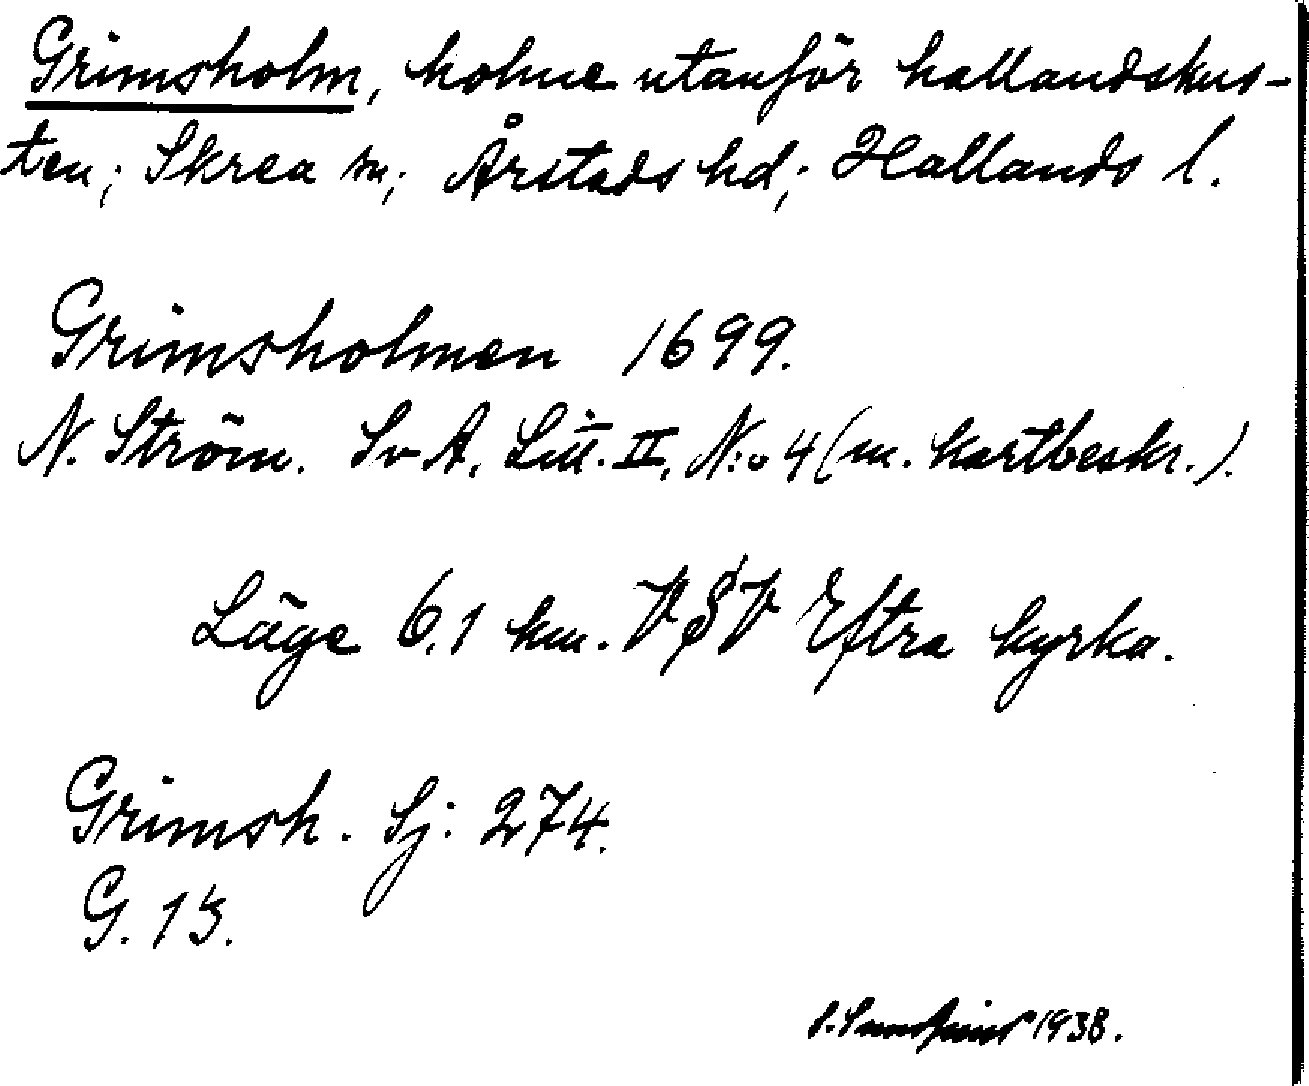 Grimsholm, holme utanför hallandskus-
ten; Skrea sn; Årstads hd; Hallands l.
Grimsholmen 1699.
N. Ström. Sv A, Litt. II, N:o 4 (m. kartbeskr.).
Läge 6,1 km. VSV Eftra kyrka.
Grimsh. Sj: 274.
G. 15.
1938.